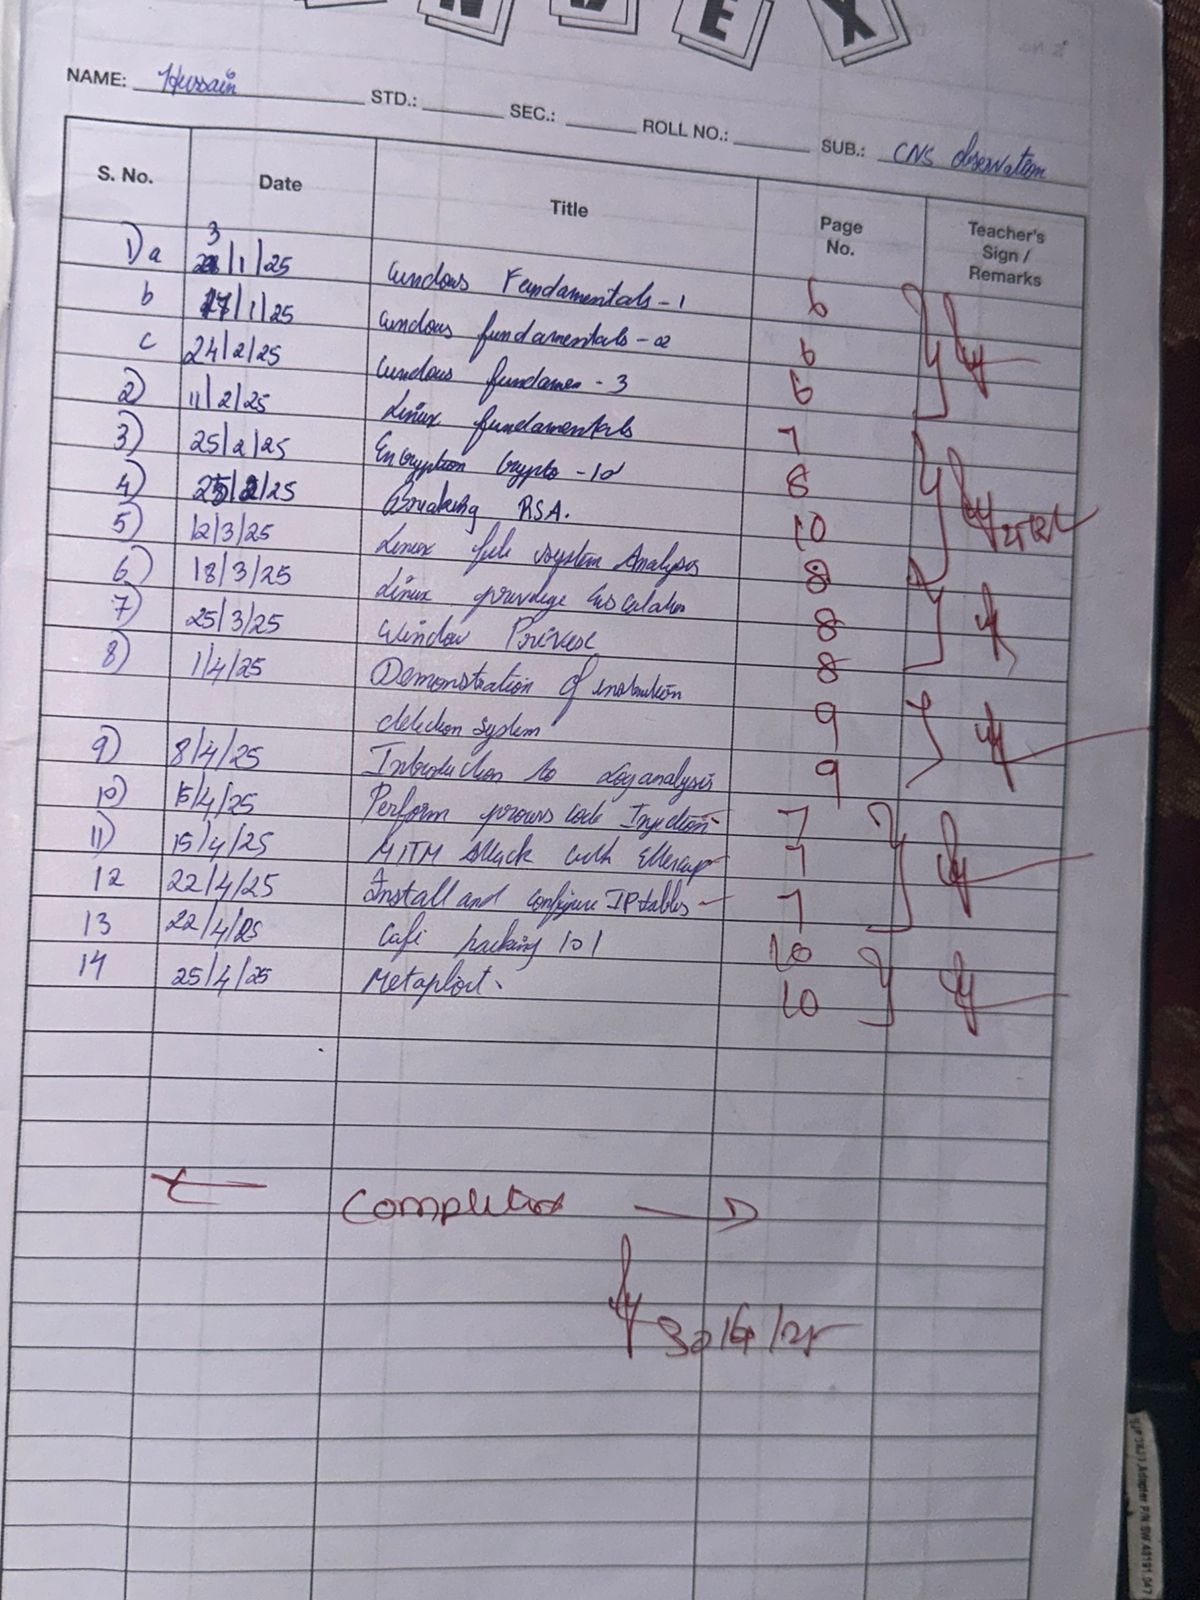 INDEX
NAME: Hussain STD.: SEC.: ROLL NO.: SUB.: CNS observation
S. No. Date Title Page No. Teacher's Sign / Remarks
1) a 3 /1/25 Fundamentals - 1 6
b 17/1/25 fundamentals - 02 6
c 24/2/25 fundamen - 3 6
2) 11/2/25 Linux fundamentals 7
3) 25/2/25 Encryption Crypto - 101 8
4) 25/2/25 Breaking RSA. 10
5) 12/3/25 Linux file system Analysis 8
6) 18/3/25 Linux privilege 8
7) 25/3/25 Window 8
8) 1/4/25 Demonstration of
detection system 9
9) 8/4/25 Introduction to log analysis 9
10) 15/4/25 Perform code Injection 7
11) 15/4/25 MITM attack with 7
12 22/4/25 Install and configure IPtables 7
13 22/4/25 hacking 101 10
14 25/4/25 Metaploit 10
30/4/25